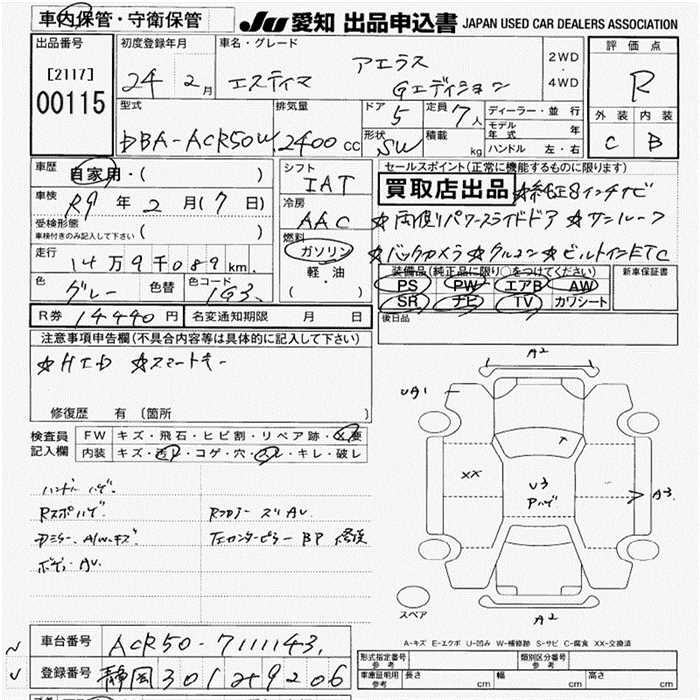 車内保管・守衛保管
JU 愛知 出品申込書 JAPAN USED CAR DEALERS ASSOCIATION
出品番号
[2117]
00115
初度登録年月
24 2月
車名・グレード
エスティマ アエラス Gエディション
2WD
4WD
評価点
R
外装 内装
C B
型式
DBA-ACR50W
排気量
2400 cc
ドア
5
形状
SW
定員
7人
積載
kg
ディーラー・並行
モデル年式 年
ハンドル 左・右
車歴
自家用・( )
車検
R9 年 2 月(7 日)
受検形態
車検付きのみ記入して下さい ( )
走行
14万9千089 km
色
グレー
色替
色コード
1G3
シフト
IAT
冷房
AAC
燃料
ガソリン
軽・油
( ・ )
セールスポイント(正常に機能するものに限ります)
買取店出品 ☆純正8インチナビ
☆両側パワースライドドア ☆サンルーフ
☆バックカメラ ☆クルコン ☆ビルトインETC
装備品(純正品に限り○をつけてください)
PS PW エアB AW
SR ナビ TV カワシート
新車保証書
後日品
R券 14440円
名変通知期限 月 日
注意事項申告欄(不具合内容等は具体的に記入して下さい)
☆HID ☆スマートキー
修復歴 有 (箇所 )
検査員記入欄
FW キズ・飛石・ヒビ割・リペア跡・X要
内装 キズ・汚れ・コゲ・穴・スレ・キレ・破レ
ハンドルハゲ
Rスポハゲ
ドアミラー、A/Wキズ
ボディAU
左センターピラーBP修復
A2
UA1
XX
U3
Pハゲ
A3
A2
スペア
A-キズ E-エクボ U-凹み W-補修跡 S-サビ C-腐食 XX-交換済
車台番号
ACR50-7111143
登録番号
静岡 301 そ 9206
形式指定番号 参考
類別区分番号 参考
車庫証明用 参考
長さ cm
幅 cm
高さ cm